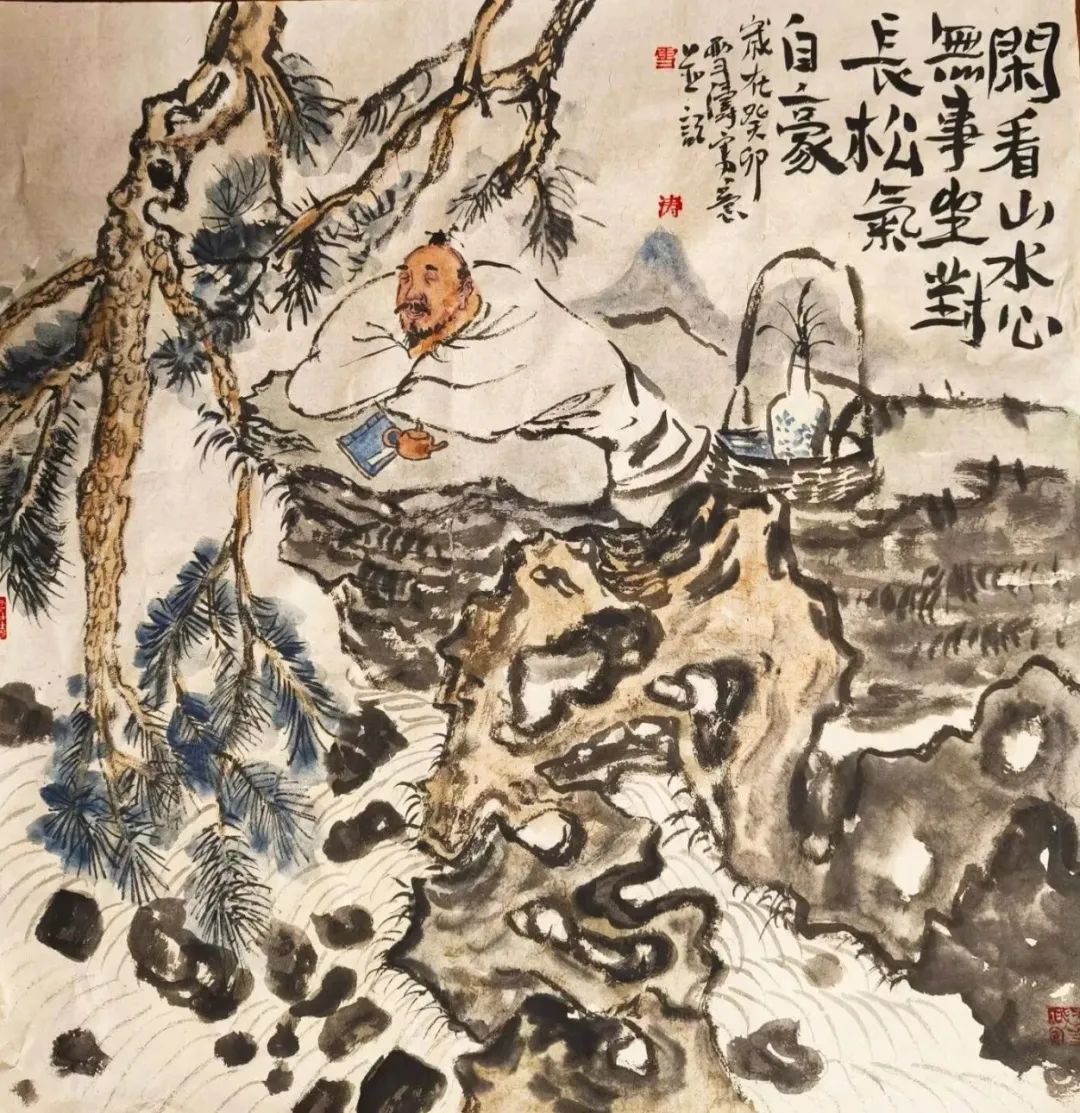 閑看山水心
無事坐對
長松氣
自豪
歲在癸卯
雪濤寫意
並記
雪
涛